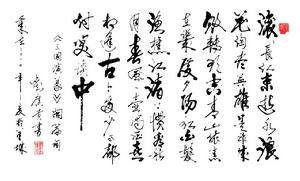 滚々长江东逝水浪
花淘尽英雄是非成
败转头空青山依旧
在几度夕阳红白发
渔樵江渚上惯看秋
月春风一壶浊酒喜
相逢古今多少事都
付笑谈中
《三国演义》开篇词
书
年夏于珠